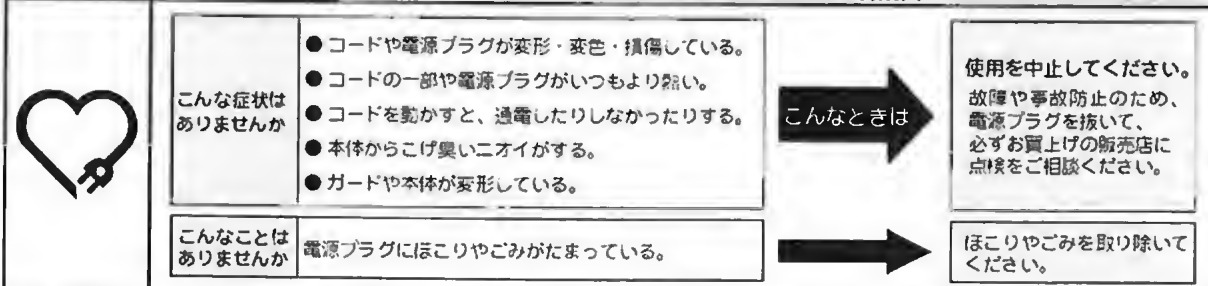 こんな症状は
ありませんか
●コードや電源プラグが変形・変色・損傷している。
●コードの一部や電源プラグがいつもより熱い。
●コードを動かすと、通電したりしなかったりする。
●本体からこげ臭いニオイがする。
●ガードや本体が変形している。
こんなときは
使用を中止してください。
故障や事故防止のため、
電源プラグを抜いて、
必ずお買上げの販売店に
点検をご相談ください。
こんなことは
ありませんか
電源プラグにほこりやごみがたまっている。
ほこりやごみを取り除いて
ください。